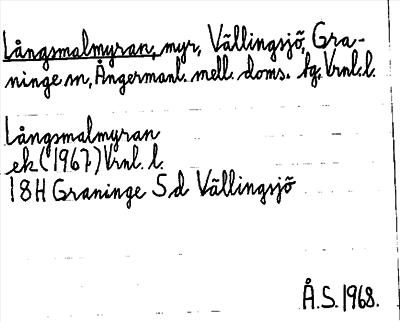 Långsmalmyran, myr, Vällingsjö, Gra-
ninge sn, Ångermanl. mell. doms. fg. Vrnl. l.
Långsmalmyran
ek (1967) Vrnl. l.
18H Graninge 5d Vällingsjö
Å.S. 1968.